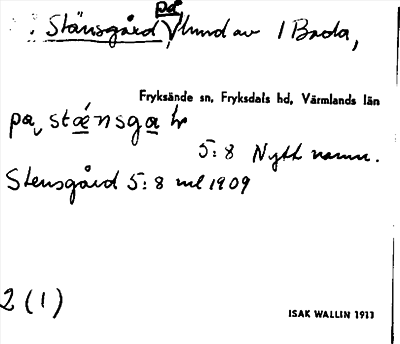 på
Stänsgård, lund av 1 Bada,
Fryksände sn, Fryksdals hd, Värmlands län
pa, stǽnsga
5:8 Nytt namn.
Stensgård 5:8 ml 1909
2 (1)
ISAK WALLIN 1911